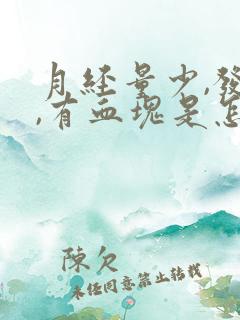 月經量少,發
,有血塊是怎
陳欠
未经同意禁止转载